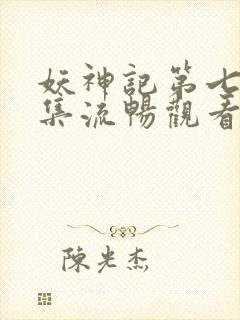 妖神記第七
集流暢觀看
陳光杰